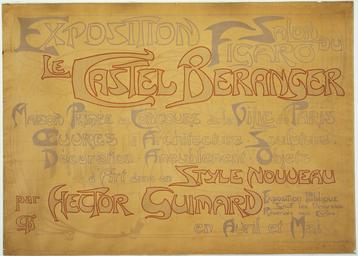 EXPOSITION SALON DU FIGARO
LE CASTEL BERANGER
MAISON PRIMÉE AU CONCOURS DE LA VILLE DE PARIS
ŒUVRES d'Architecture Sculpture
Décoration Ameublement Objets
d'Art dans un STYLE NOUVEAU
par HECTOR GUIMARD
Exposition Publique
en Avril et Mai